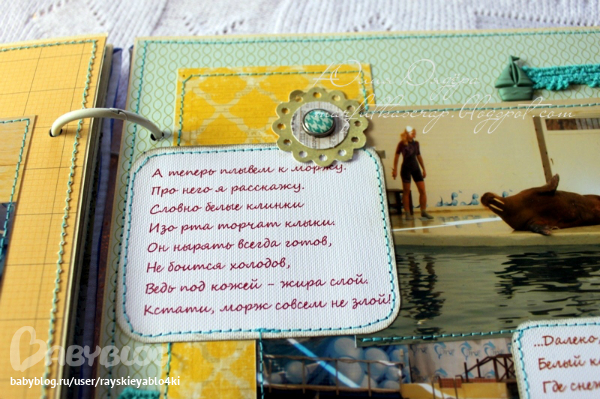 А теперь плывем к моржу.
Про него я расскажу.
Словно белые клинки
Изо рта торчат клыки.
Он нырять всегда готов,
Не боится холодов,
Ведь под кожей - жира слой.
Кстати, морж совсем не злой!
...Далеко,
Белый к
Где
BABYBLOG
babyblog.ru/user/rayskieyablo4ki